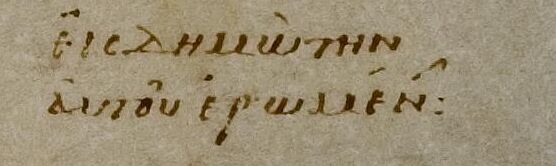 εἰς δημὼ την
ἁυτοῦ ἐρωμέν: